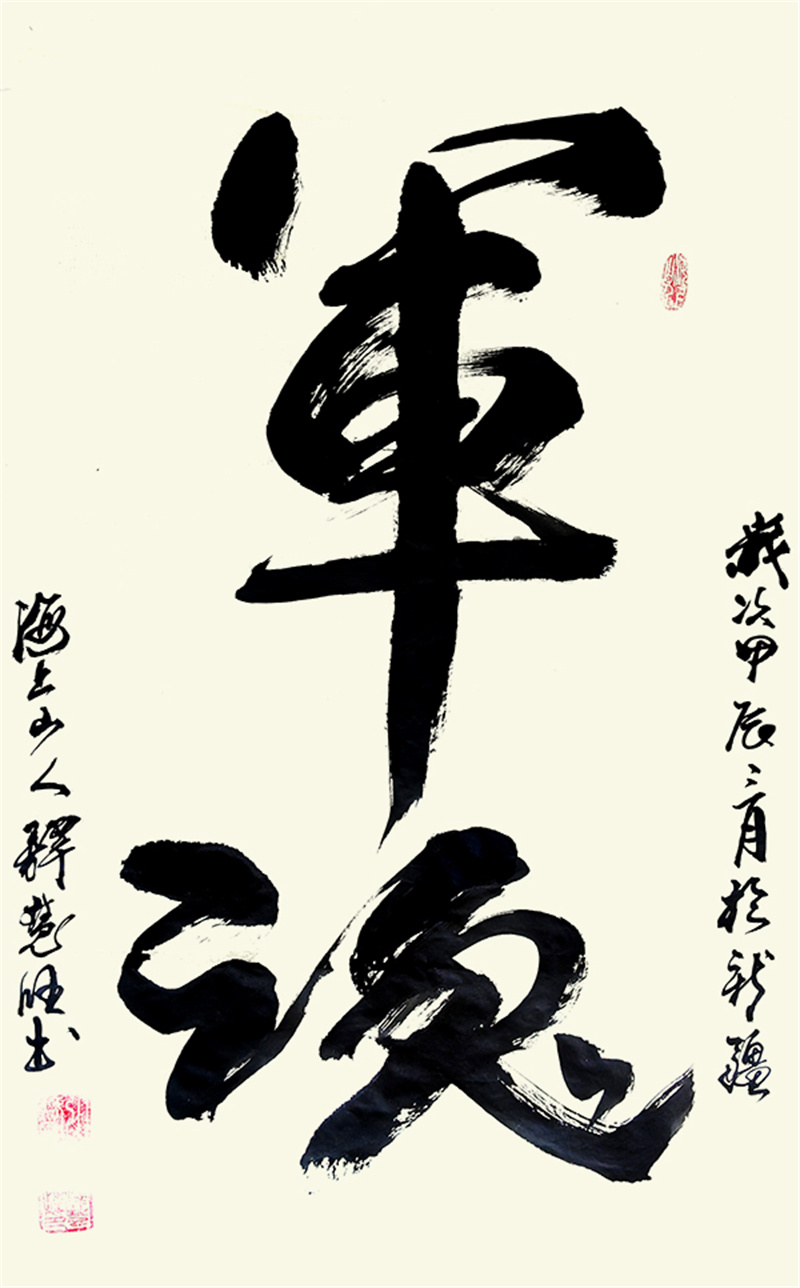 歲次甲辰三月於新疆
軍魂
海上山人釋慧旺书